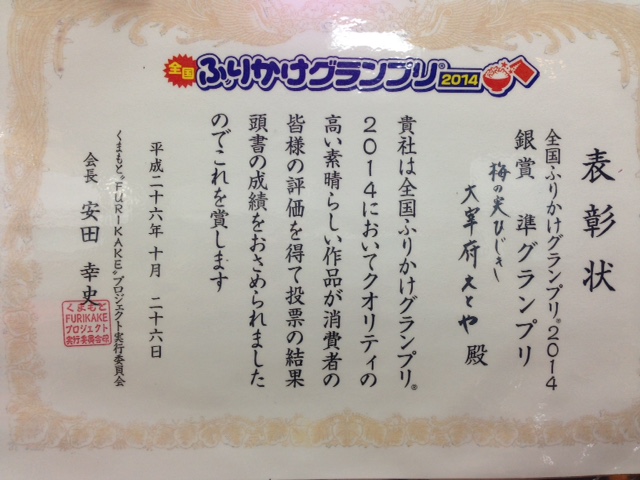 全国ふりかけグランプリ®2014
表彰状
全国ふりかけグランプリ®2014
銀賞 準グランプリ
梅の実ひじき
大宰府えとや 殿
貴社は全国ふりかけグランプリ®
2014においてクオリティの
高い素晴らしい作品が消費者の
皆様の評価を得て投票の結果
頭書の成績をおさめられました
のでこれを賞します
平成二十六年十月 二十六日
くまもと"FURIKAKE"プロジェクト実行委員会
会長 安田 幸史
くまもと
FURIKAKE
プロジェクト
実行委員会印